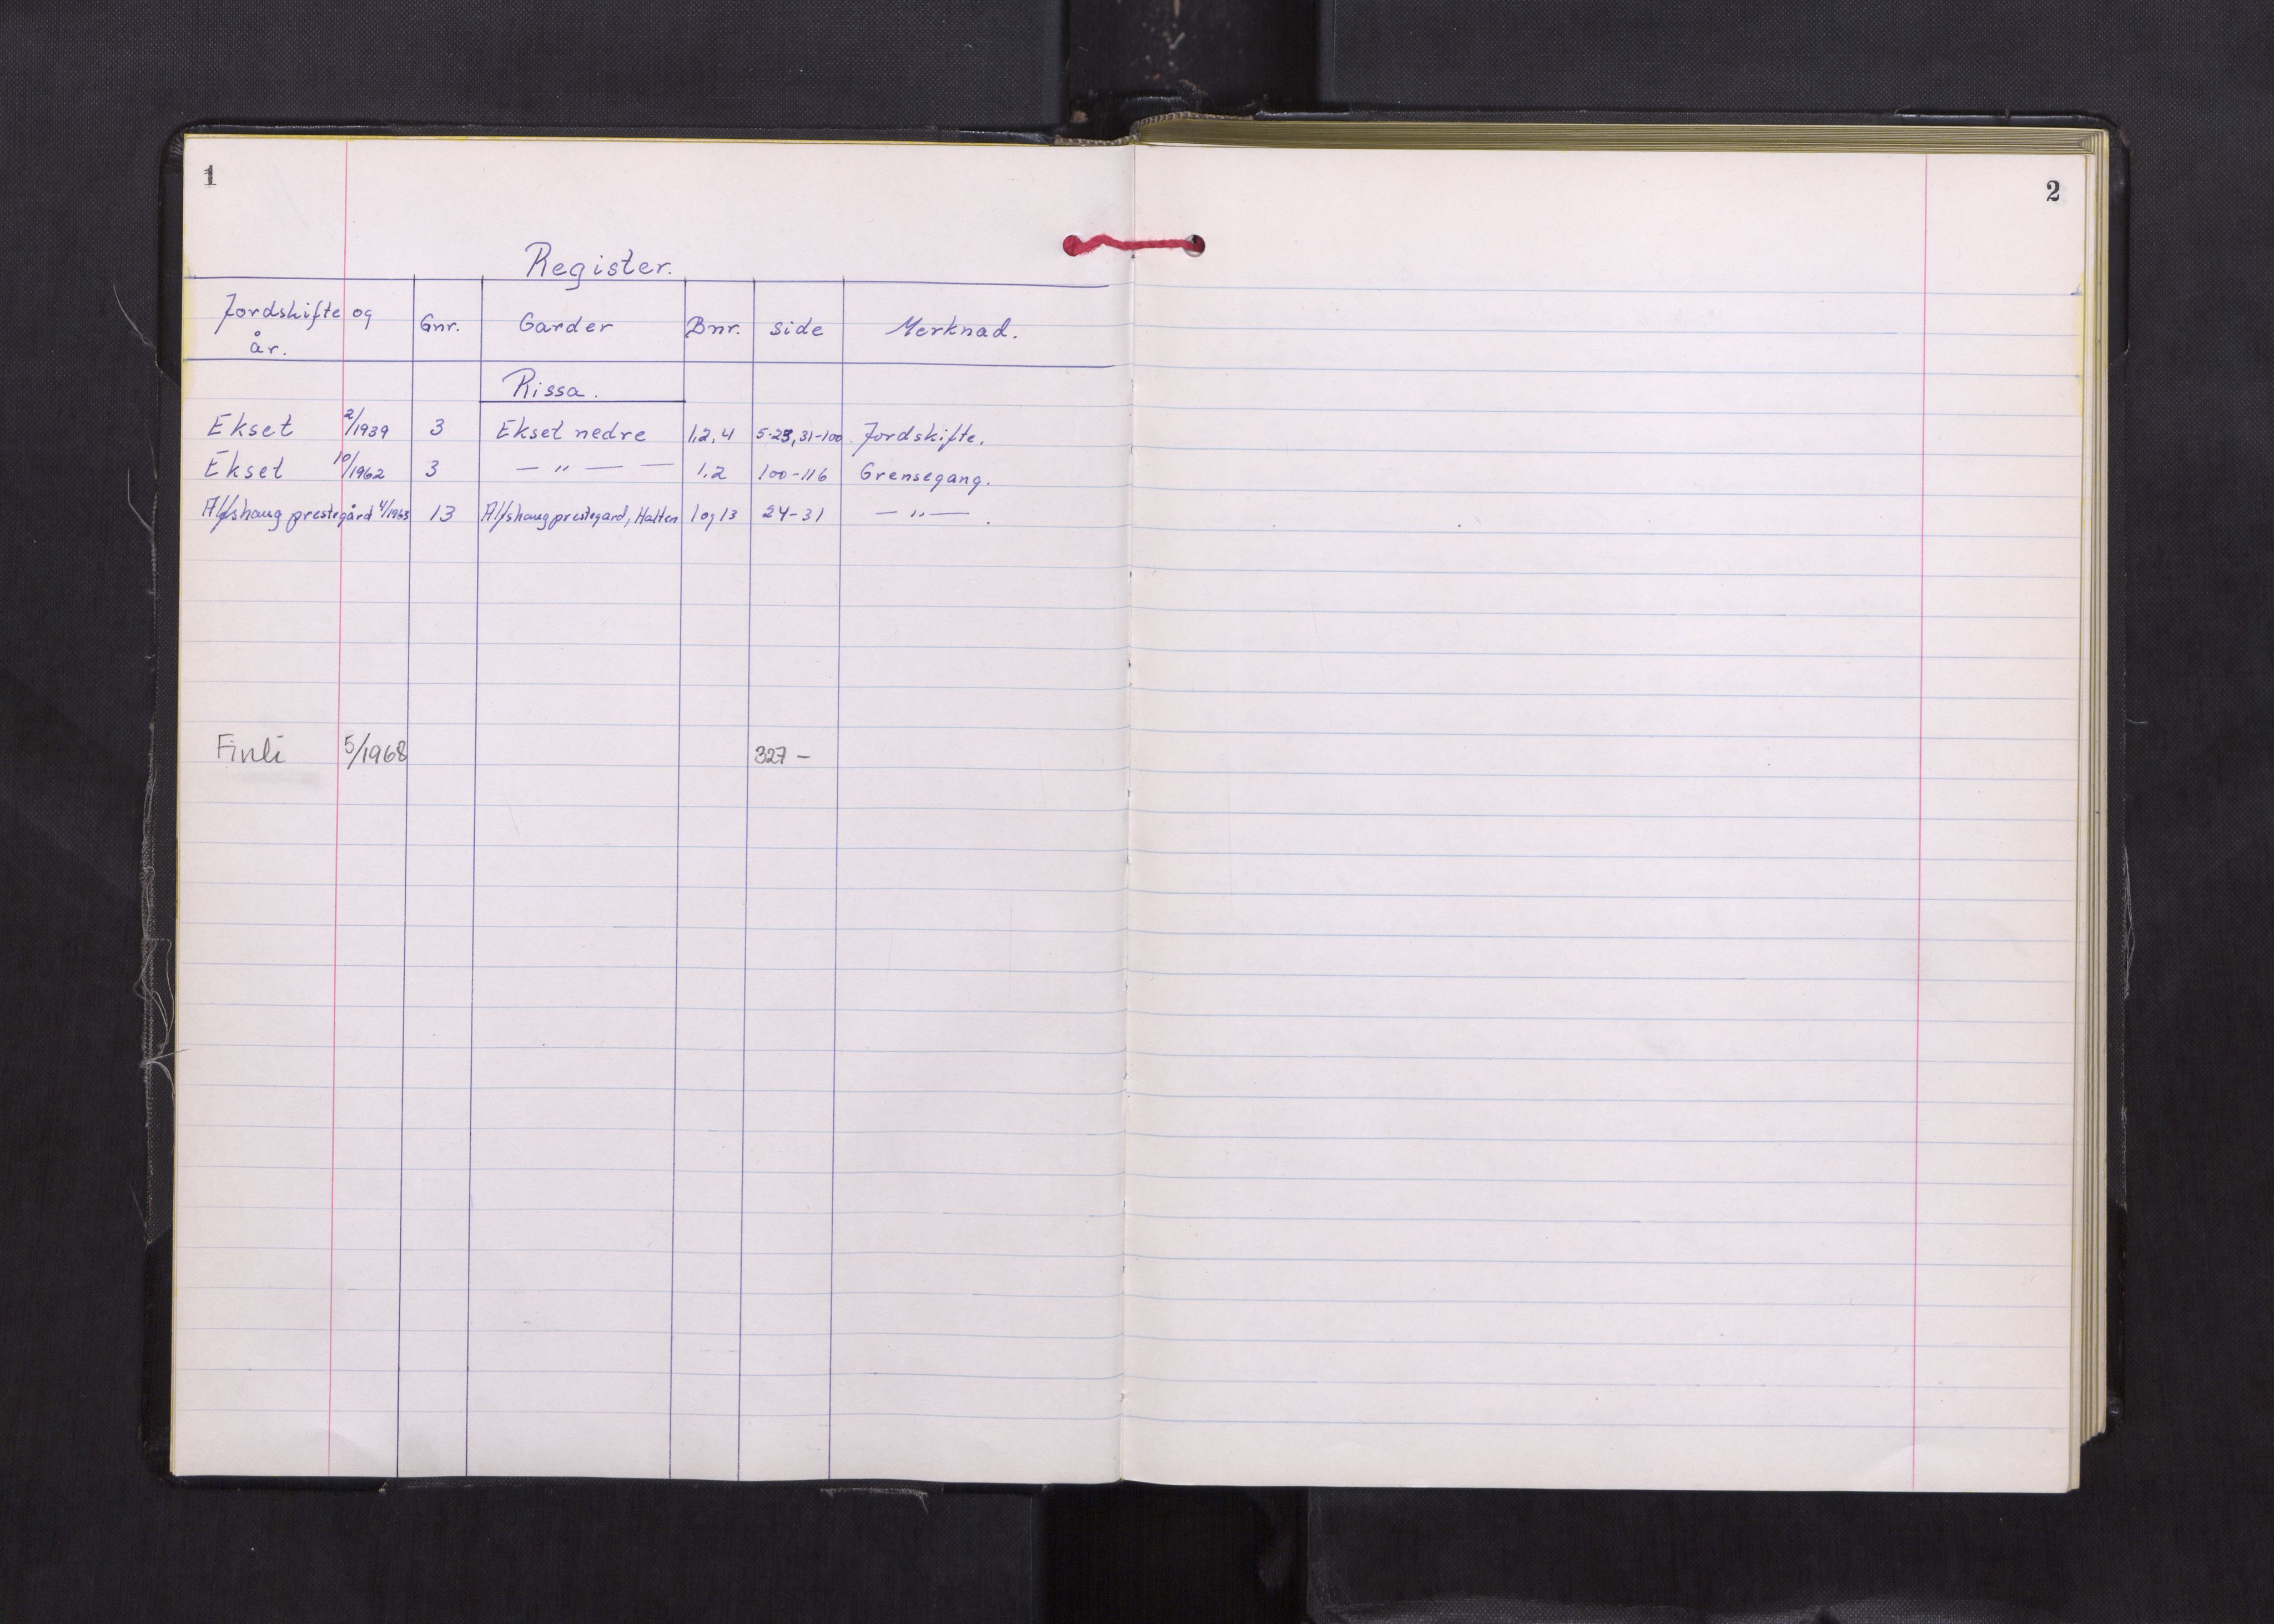 1
2
Register.
Jordskifte og år. Gnr. Garder Bnr. side Merknad.
Rissa.
Ekset 2/1939 3 Ekset nedre 1,2,4 5-23, 31-100 Jordskifte.
Ekset 10/1962 3 — " — — 1,2 100-116 Grensegang.
Alfshaug prestegård 4/1963 13 Alfshaug prestegard, Halten 1 og 13 24-31 — " — .
Finli 5/1968 327 -